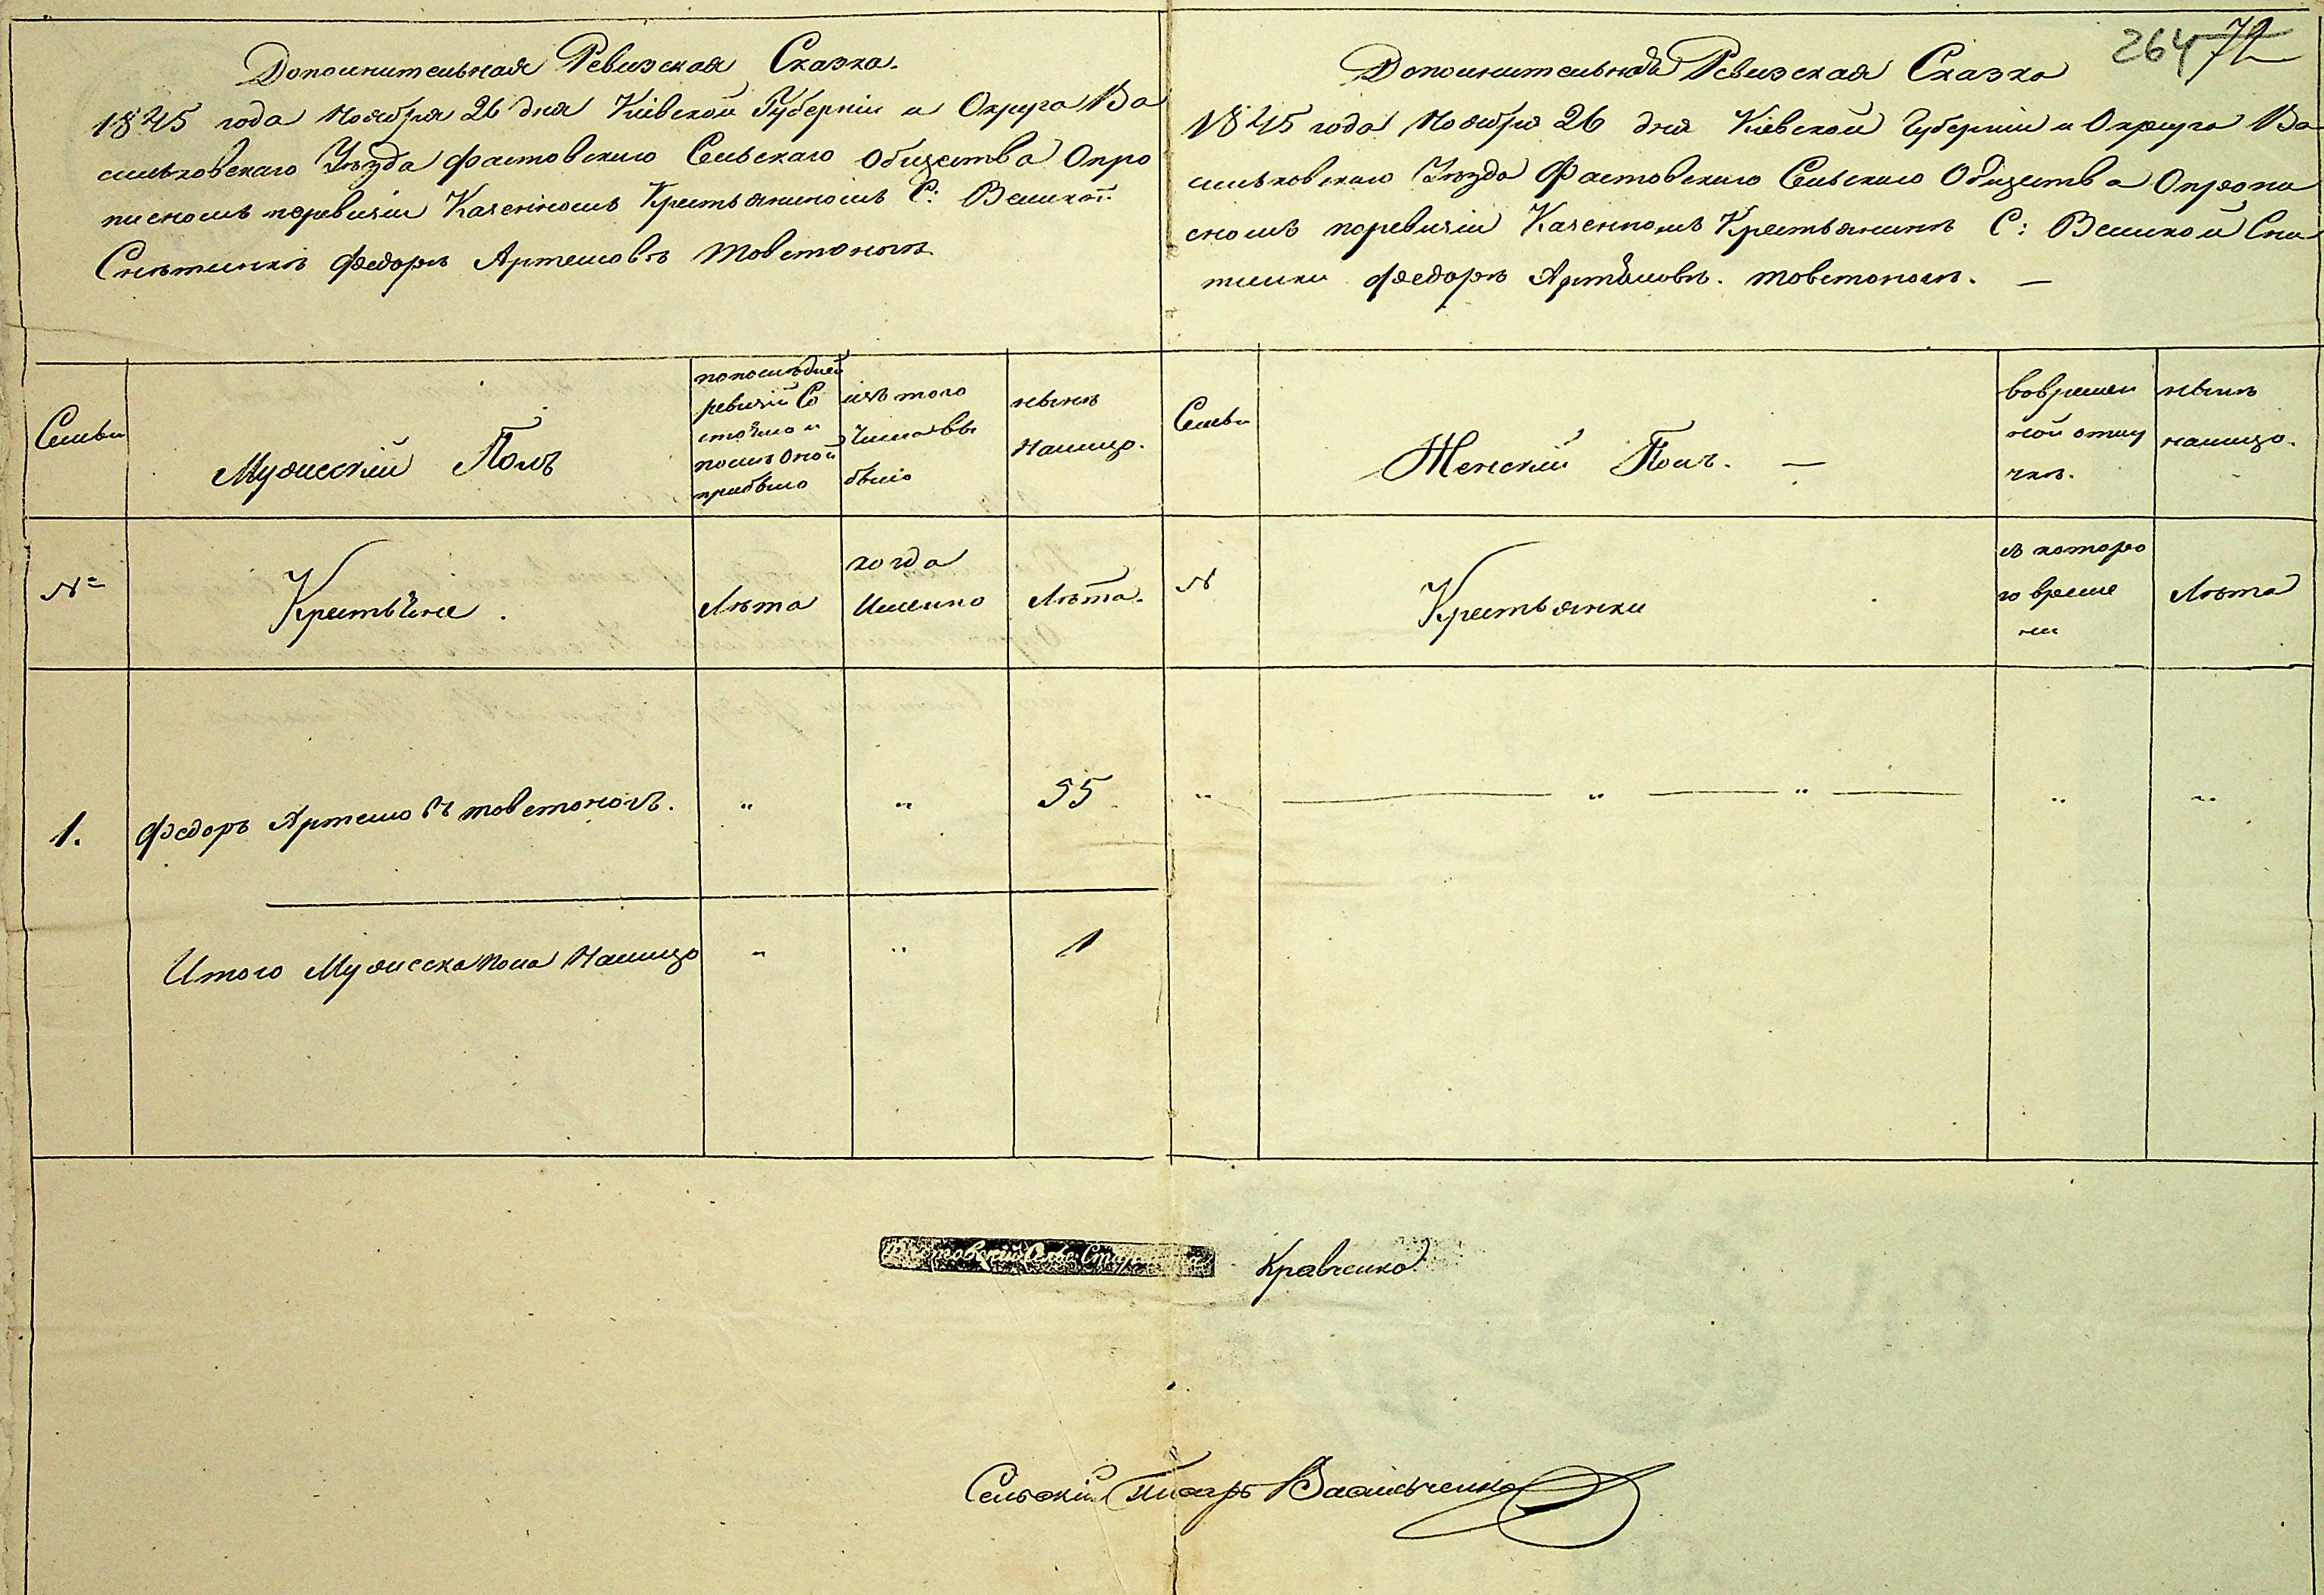 Дополнительная Ревизская Сказка.
1845 года Ноября 26 дня Кіевской Губерніи и Округа Ва
сильковскаго Уезда Фастовскаго Сельскаго Общества О про
писномъ поревизіи Казенномъ Крестьяниномъ С: Великой
Снѣтинки Федоръ Артемовъ Товстоногъ.
264 72
Дополнительная Ревизская Сказка
1845 года Ноября 26 дня Кіевской Губерніи и Округа Ва
сильковскаго Уезда Фастовскаго Сельскаго Общества О пропи
сномъ поревизіи Казенномъ Крестьянинъ С: Великой Сни
тинки Федоръ Артемовъ. Товстоногъ. —
Семьи
Мужискій Полъ
попослѣдней
ревизіи Со
стояло и
послѣ Оной
прибыло
изъ того
Числа Вы
было
нынѣ
Налицо.
Семьи
Женскій Полъ. —
вовремен
ной отлу
чкѣ.
нынѣ
налицо.
№
Крестьяне.
Лѣта
когда
Именно
Лѣта.
N
Крестьянки
съ которо
го време
ни
Лѣта
1. Федоръ Артемовъ Товстоногъ. " " 55 " " " " "
Итого Мужеска пола Налицо " " 1
Фастовскій Сельс. Стар Кравченко
Сельскій Писарь Васильченко